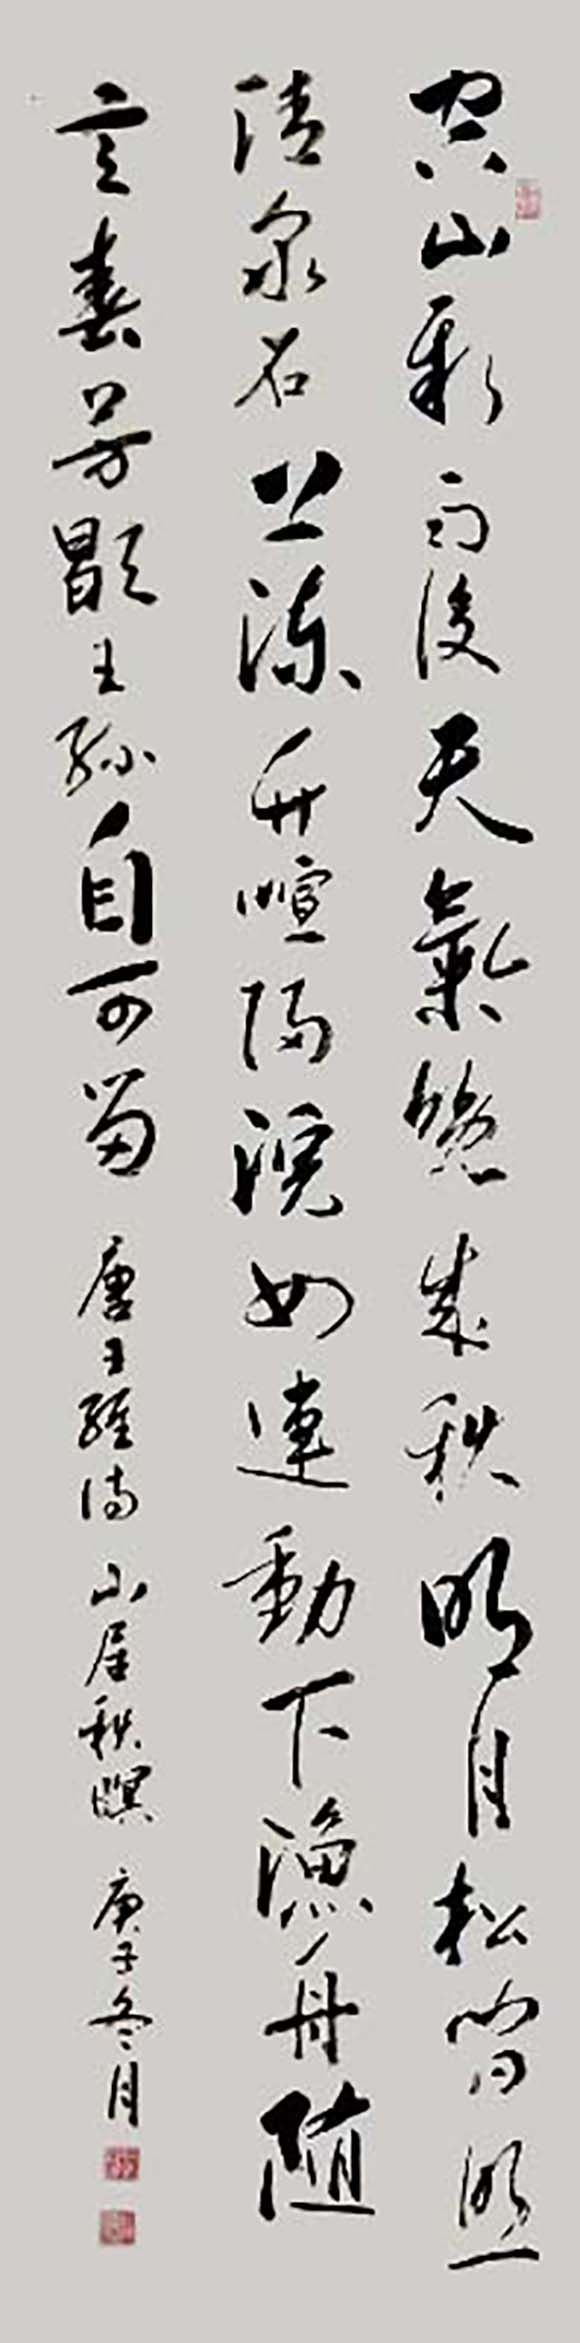 空山新雨後天氣晚來秋明月松間照
清泉石上流竹喧歸浣女蓮動下漁舟隨
意春芳歇王孫自可留 唐王維詩 山居秋暝 庚子冬月